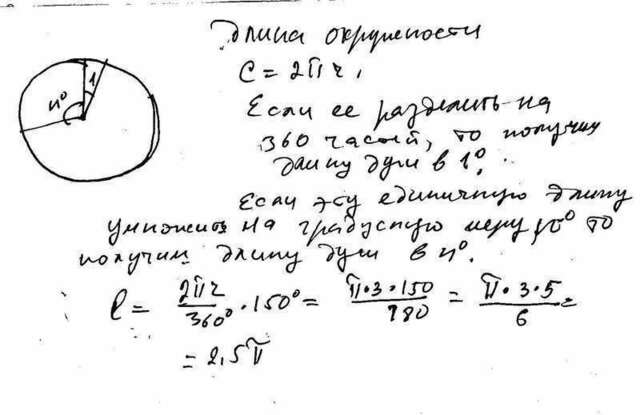 Длина окружности
C = 2πr,
n° 1
Если ее разделить на
360 частей, то получим
длину дуги в 1°.
Если эту единичную длину
умножить на градусную меру n° то
получим длину дуги в n°.
l = 2πr/360° · 150° = π·3·150/180 = π·3·5/6 =
= 2,5π